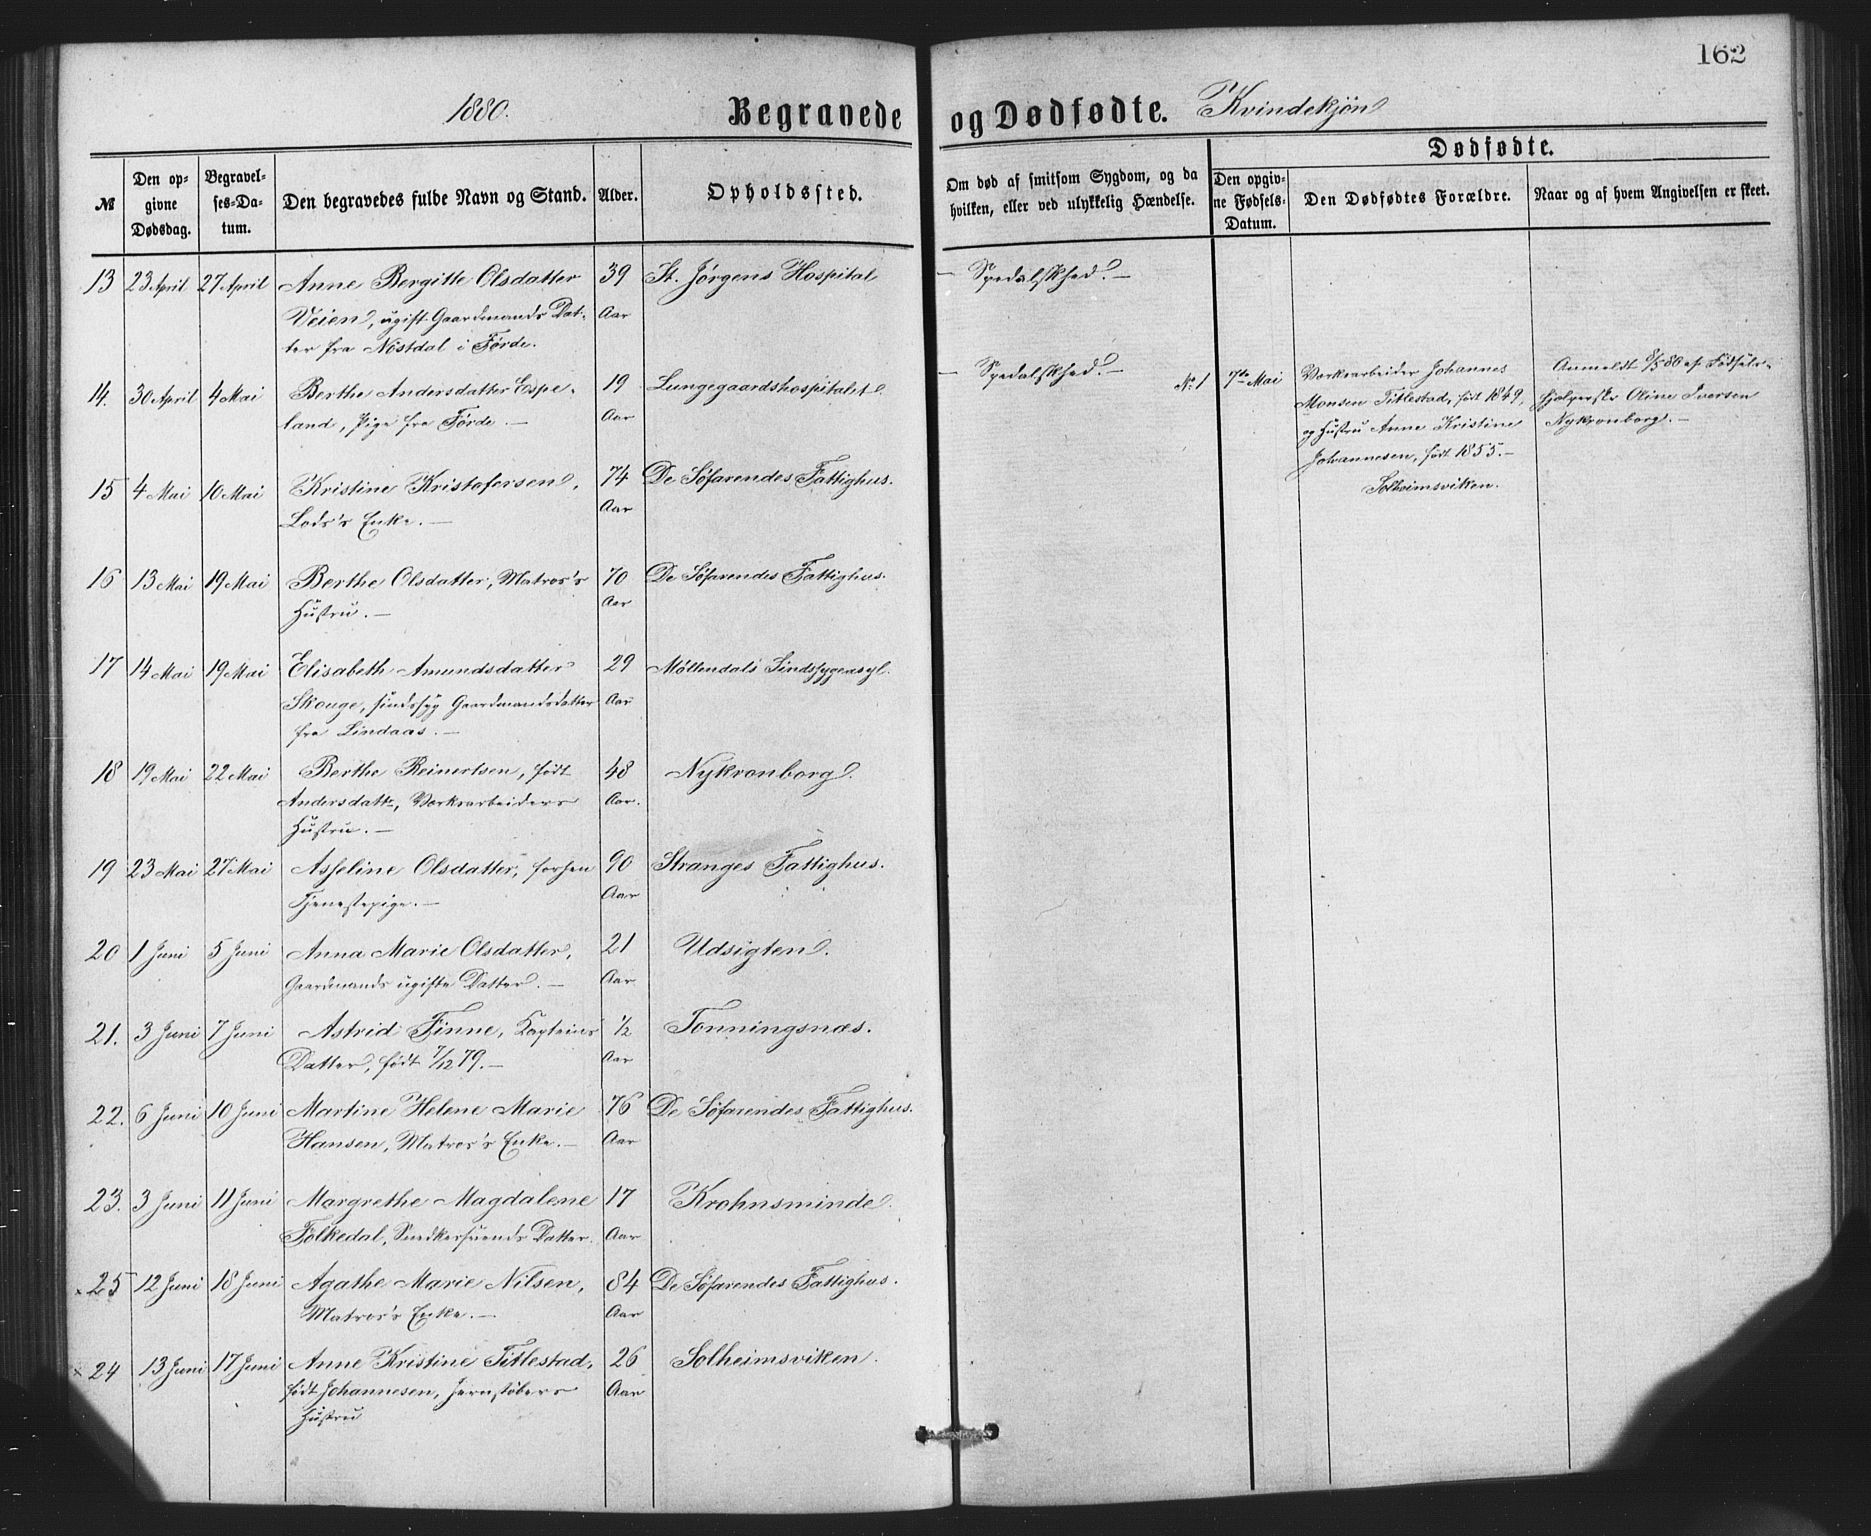 162
1880. Begravede og Dødfødte. Kvindekjøn
№
Den op-
givne
Dødsdag.
Begravel-
ses-Da-
tum.
Den begravedes fulde Navn og Stand.
Alder.
Opholdssted.
Om død af smitsom Sygdom, og da
hvilken, eller ved ulykkelig Hændelse.
Dødfødte.
Den opgiv-
ne Fødsels-
Datum.
Den Dødfødtes Forældre.
Naar og af hvem Angivelsen er skeet.
13 23 April 27 April Anne Bergitte Olsdatter 39 St. Jørgens Hospital – Spedalskhed. –
Veien, ugift Gaardmands Dat- Aar
ter fra Nøstdal i Førde.
14. 30 April 4 Mai Berthe Andersdatter Espe- 19 Lungegaardshospitalet. – Spedalskhed. –
land, Pige fra Førde. – Aar
15 4 Mai 10 Mai Kristine Kristofersen, 74 De Søfarendes Fattighus.
Lods's Enke. – Aar
16 13 Mai 19 Mai Berthe Olsdatter, Matros's 70 De Søfarendes Fattighus.
Hustru. – Aar
17 14 Mai 19 Mai Elisabeth Amundsdatter 29 Møllendals Sindssygeasyl.
Skouge, sindssyg Gaardmandsdatter Aar
fra Lindaas. –
18 19 Mai 22 Mai Berthe Reinertsen, født 48 Nykronborg.
Andersdattr, Værksarbeiders Aar.
Hustru. –
19 23 Mai 27 Mai Asseline Olsdatter, forhen 90 Stranges Fattighus.
Tjenestepige. – Aar
20 1 Juni 5 Juni Anna Marie Olsdatter, 21 Udsigten.
Gaardmands ugifte Datter. – Aar
21. 3 Juni 7 Juni Astrid Finne, Kapteins 1/2 Tonningsnæs.
Datter, født 7/12 79. – Aar
22. 6 Juni 10 Juni Martine Helene Marie 76 De Søfarendes Fattighus.
Hansen, Matros's Enke. – Aar
23. 3 Juni 11 Juni Margrethe Magdalene 17 Krohnsminde.
Folkedal, Snedkersvends Datter. Aar
× 25 12 Juni 18 Juni Agathe Marie Nilsen, 84 De Søfarendes Fattighus.
Matros's Enke. – Aar
× 24 13 Juni 17 Juni Anne Kristine Titlestad, 26 Solheimsviken.
født Johannesen, Jernstøbers Aar
Hustru
No 1 7de Mai Værksarbeider Johannes
Monsen Titlestad, født 1849,
og Hustru Anne Kristine
Johannesen, født 1855. –
Solheimsviken.
Anmeldt 8/5 80 af Fødsels-
hjælperske Oline Iversen
Nykronborg. –